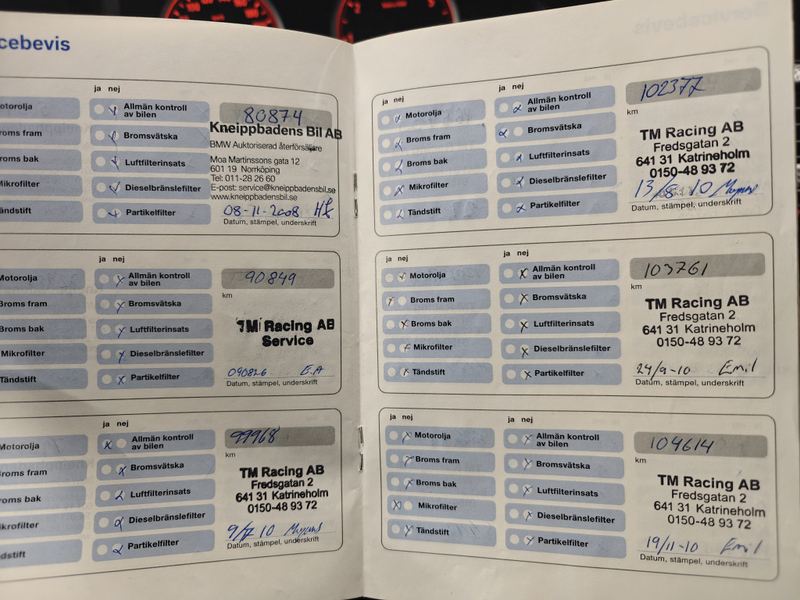 cebevis
ja nej
otorolja
roms fram
roms bak
Mikrofilter
Tändstift
Allmän kontroll
av bilen
Bromsvätska
Luftfilterinsats
Dieselbränslefilter
Partikelfilter
80874
Kneippbadens Bil AB
BMW Auktoriserad återförsäljare
Moa Martinssons gata 12
601 19 Norrköping
Tel: 011-28 26 60
E-post: service@kneippbadensbil.se
www.kneippbadensbil.se
08-11-2008
Datum, stämpel, underskrift
ja nej
Motorolja
roms fram
Broms bak
Mikrofilter
Tändstift
Allmän kontroll
av bilen
Bromsvätska
Luftfilterinsats
Dieselbränslefilter
Partikelfilter
90849
km
TM Racing AB
Service
090826 E.A
Datum, stämpel, underskrift
ja nej
Motorolja
Broms fram
roms bak
krofilter
ndstift
Allmän kontroll
av bilen
Bromsvätska
Luftfilterinsats
Dieselbränslefilter
Partikelfilter
99968
km
TM Racing AB
Fredsgatan 2
641 31 Katrineholm
0150-48 93 72
9/7 10
Datum, stämpel, underskrift
ja nej
Motorolja
Broms fram
Broms bak
Mikrofilter
Tändstift
ja nej
Allmän kontroll
av bilen
Bromsvätska
Luftfilterinsats
Dieselbränslefilter
Partikelfilter
102377
km
TM Racing AB
Fredsgatan 2
641 31 Katrineholm
0150-48 93 72
13/8 10
Datum, stämpel, underskrift
ja nej
Motorolja
Broms fram
Broms bak
Mikrofilter
Tändstift
ja nej
Allmän kontroll
av bilen
Bromsvätska
Luftfilterinsats
Dieselbränslefilter
Partikelfilter
103761
km
TM Racing AB
Fredsgatan 2
641 31 Katrineholm
0150-48 93 72
24/9-10 Emil
Datum, stämpel, underskrift
ja nej
Motorolja
Broms fram
Broms bak
Mikrofilter
Tändstift
ja nej
Allmän kontroll
av bilen
Bromsvätska
Luftfilterinsats
Dieselbränslefilter
Partikelfilter
104614
km
TM Racing AB
Fredsgatan 2
641 31 Katrineholm
0150-48 93 72
19/11-10 Emil
Datum, stämpel, underskrift